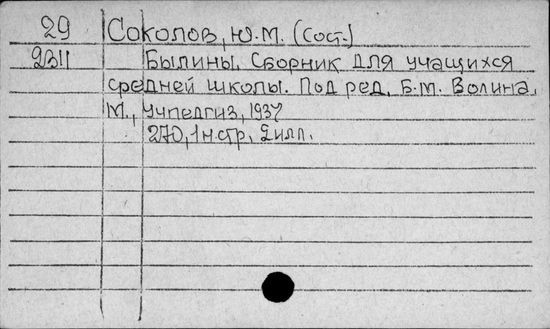 29 Соколов, Ю.М. (сост.)
2311 Былины. Сборник для учащихся
средней школы. Под ред. Б.М. Волина.
М., Учпедгиз, 1937
270, 1 н. стр., 2 илл.